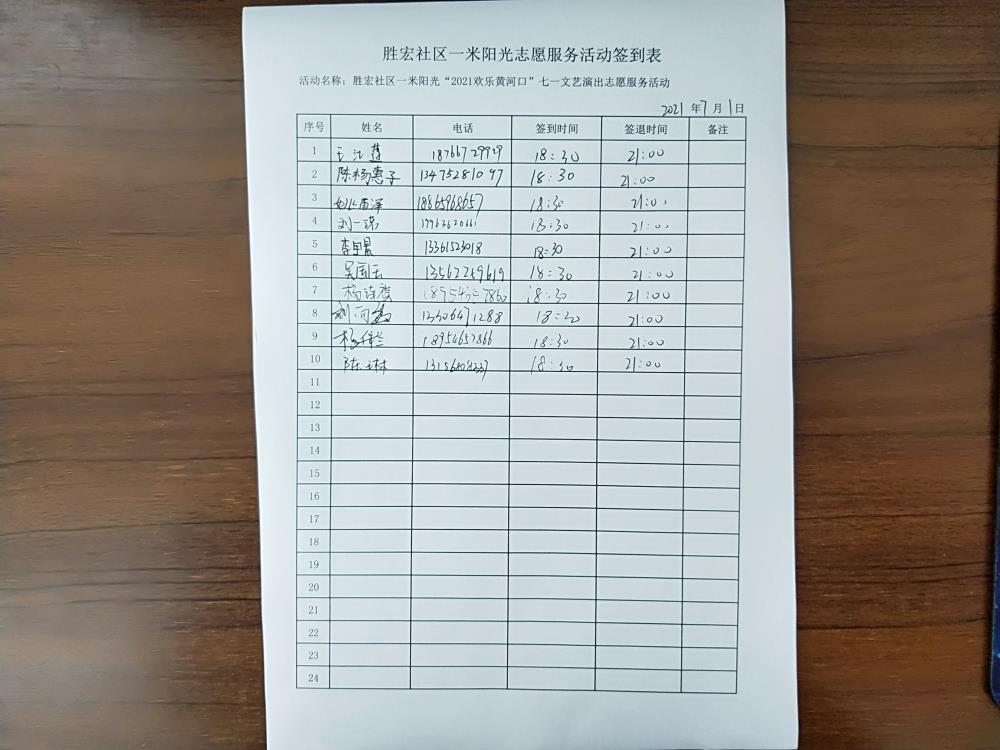 胜宏社区一米阳光志愿服务活动签到表
活动名称：胜宏社区一米阳光“2021欢乐黄河口”七一文艺演出志愿服务活动
2021 年 7 月 1 日
序号 姓名 电话 签到时间 签退时间 备注
1 王江莲 18766729929 18:30 21:00
2 陈杨惠子 13475281097 18:30 21:00
3 18865968657 18:30 21:00
4 刘一 18:30 21:00
5 13361523018 18:30 21:00
6 吴国玉 13562259619 18:30 21:00
7 杨诗 18:30 21:00
8 21:00
9 杨 18954657866 18:30 21:00
10 陈 18:30 21:00
11
12
13
14
15
16
17
18
19
20
21
22
23
24